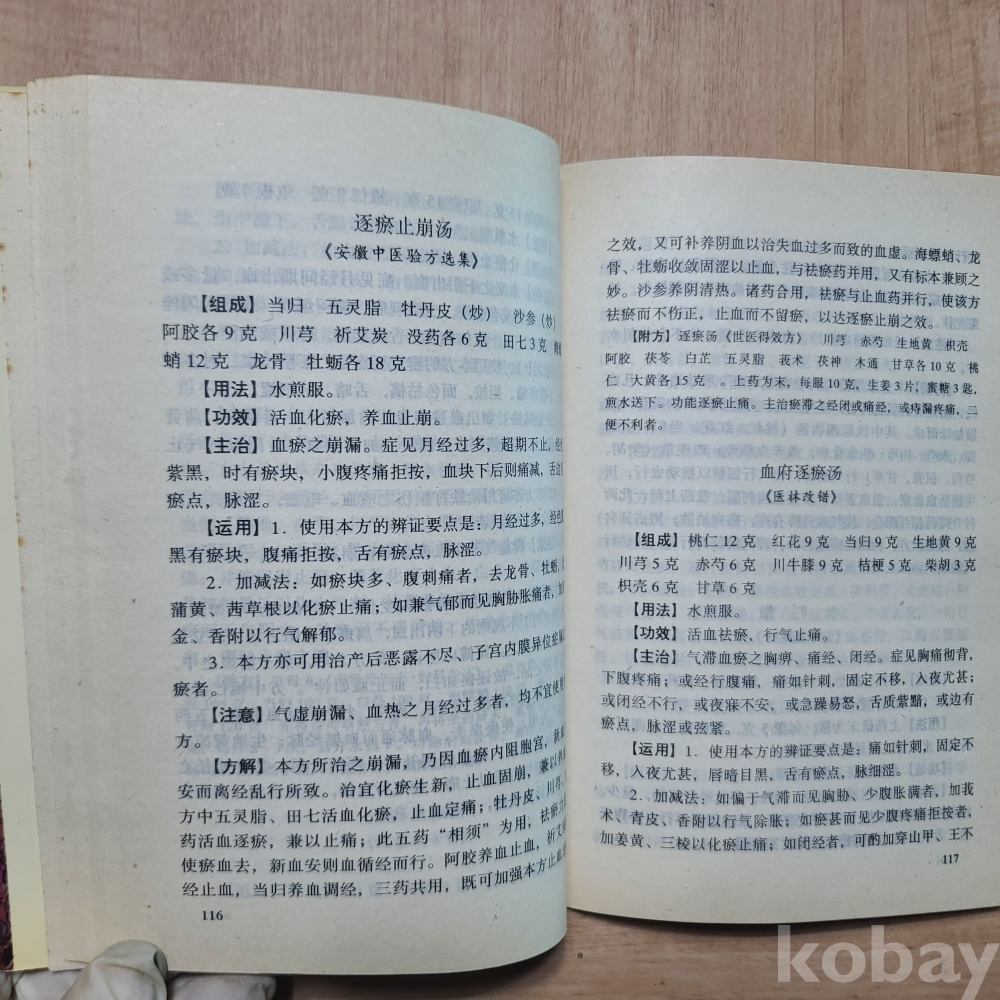 逐瘀止崩汤
《安徽中医验方选集》
【组成】当归 五灵脂 牡丹皮（炒） 沙参（炒）
阿胶各 9 克 川芎 祈艾炭 没药各 6 克 田七 3 克
蛸 12 克 龙骨 牡蛎各 18 克
【用法】水煎服。
【功效】活血化瘀，养血止崩。
【主治】血瘀之崩漏。症见月经过多，超期不止，经
紫黑，时有瘀块，小腹疼痛拒按，血块下后则痛减，舌边
瘀点，脉涩。
【运用】1．使用本方的辨证要点是：月经过多，经色
黑有瘀块，腹痛拒按，舌有瘀点，脉涩。
2．加减法：如瘀块多、腹刺痛者，去龙骨、牡蛎，加
蒲黄、茜草根以化瘀止痛；如兼气郁而见胸胁胀痛者，加
金、香附以行气解郁。
3．本方亦可用治产后恶露不尽、子宫内膜异位症
瘀者。
【注意】气虚崩漏、血热之月经过多者，均不宜使用
方。
【方解】本方所治之崩漏，乃因血瘀内阻胞宫，新血
安而离经乱行所致。治宜化瘀生新，止血固崩，兼以养
方中五灵脂、田七活血化瘀，止血定痛；牡丹皮、川芎、
药活血逐瘀，兼以止痛；此五药“相须”为用，祛瘀力
使瘀血去，新血安则血循经而行。阿胶养血止血，祈艾
经止血，当归养血调经，三药共用，既可加强本方止血
116
之效，又可补养阴血以治失血过多而致的血虚。海螵蛸、龙
骨、牡蛎收敛固涩以止血，与祛瘀药并用，又有标本兼顾之
妙。沙参养阴清热。诸药合用，祛瘀与止血药并行，使该方
祛瘀而不伤正，止血而不留瘀，以达逐瘀止崩之效。
【附方】逐瘀汤《世医得效方》 川芎 赤芍 生地黄 枳壳
阿胶、茯苓 白芷 五灵脂 莪术 茯神 木通 甘草各 10 克 桃
仁、大黄各 15 克 。上药为末，每服 10 克，生姜 3 片，蜜糖 3 匙，
煎水送下。功能逐瘀止痛。主治瘀滞之经闭或痛经，或痔漏疼痛，二
便不利者。
血府逐瘀汤
《医林改错》
【组成】桃仁 12 克 红花 9 克 当归 9 克 生地黄 9 克
川芎 5 克 赤芍 6 克 川牛膝 9 克 桔梗 5 克 柴胡 3 克
枳壳 6 克 甘草 6 克
【用法】水煎服。
【功效】活血祛瘀，行气止痛。
【主治】气滞血瘀之胸痹、痛经、闭经。症见胸痛彻背，
下腹疼痛；或经行腹痛，痛如针刺，固定不移，入夜尤甚；
或闭经不行，或夜寐不安，或急躁易怒，舌质紫黯，或边有
瘀点，脉涩或弦紧。
【运用】1．使用本方的辨证要点是：痛如针刺，固定不
移，入夜尤甚，唇暗目黑，舌有瘀点，脉细涩。
2．加减法：如偏于气滞而见胸胁、少腹胀满者，加莪
术、青皮、香附以行气除胀；如瘀甚而见少腹疼痛拒按者，
加姜黄、三棱以化瘀止痛；如闭经者，可酌加穿山甲、王不
117
kobay